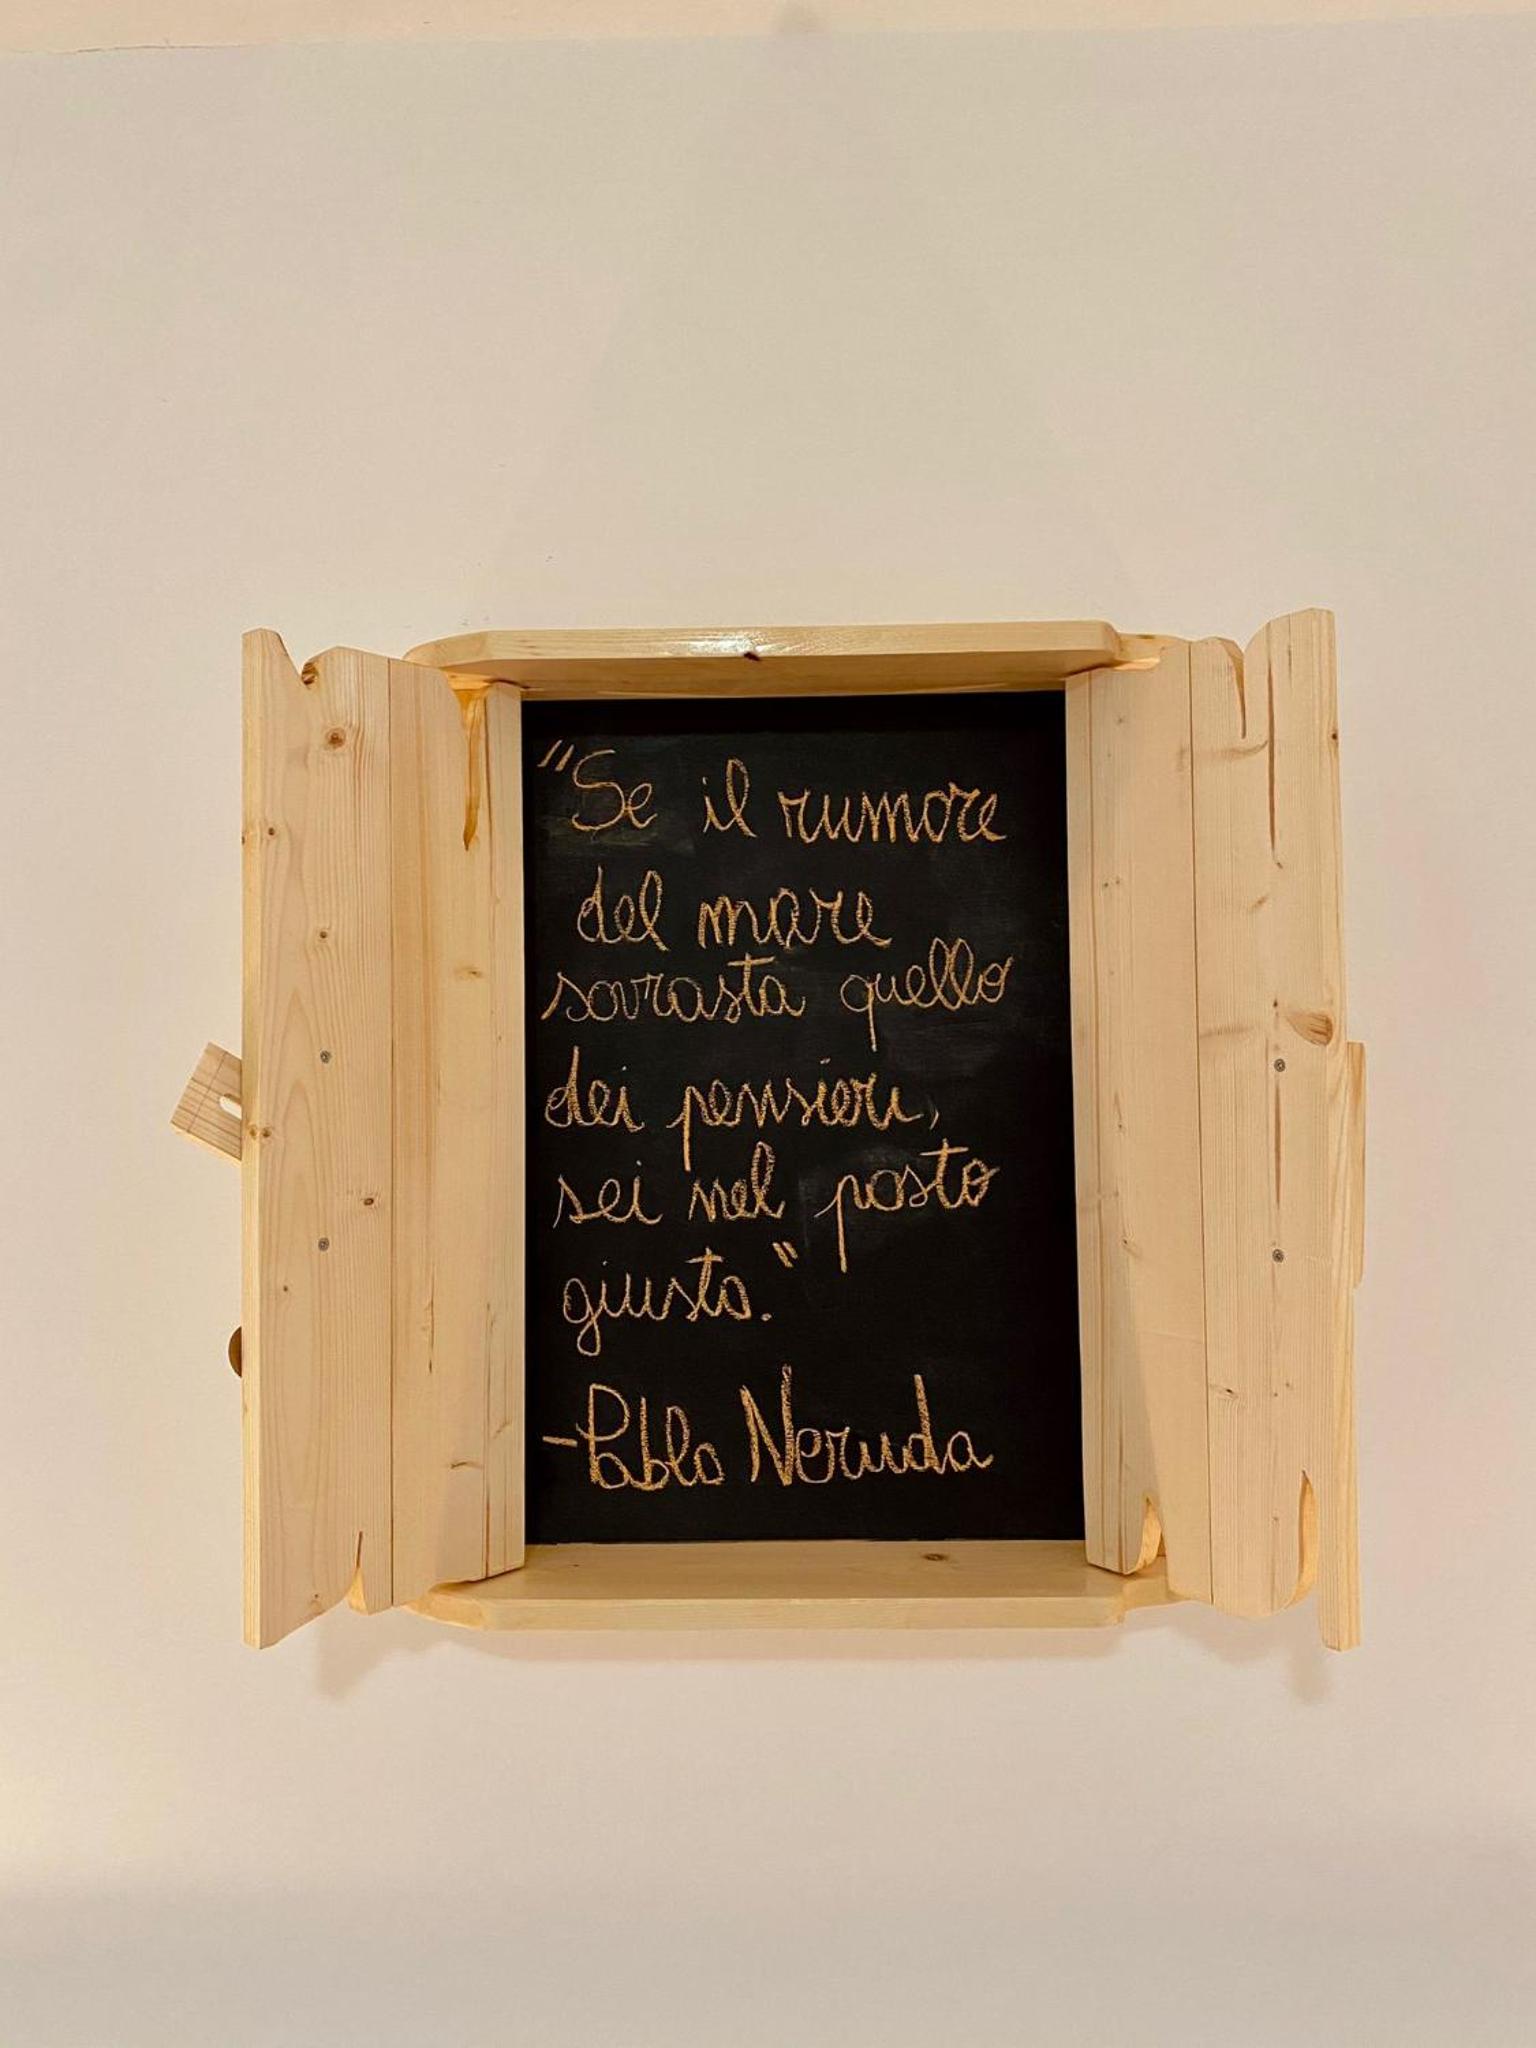 "Se il rumore
del mare
sovrasta quello
dei pensieri,
sei nel posto
giusto."
-Pablo Neruda